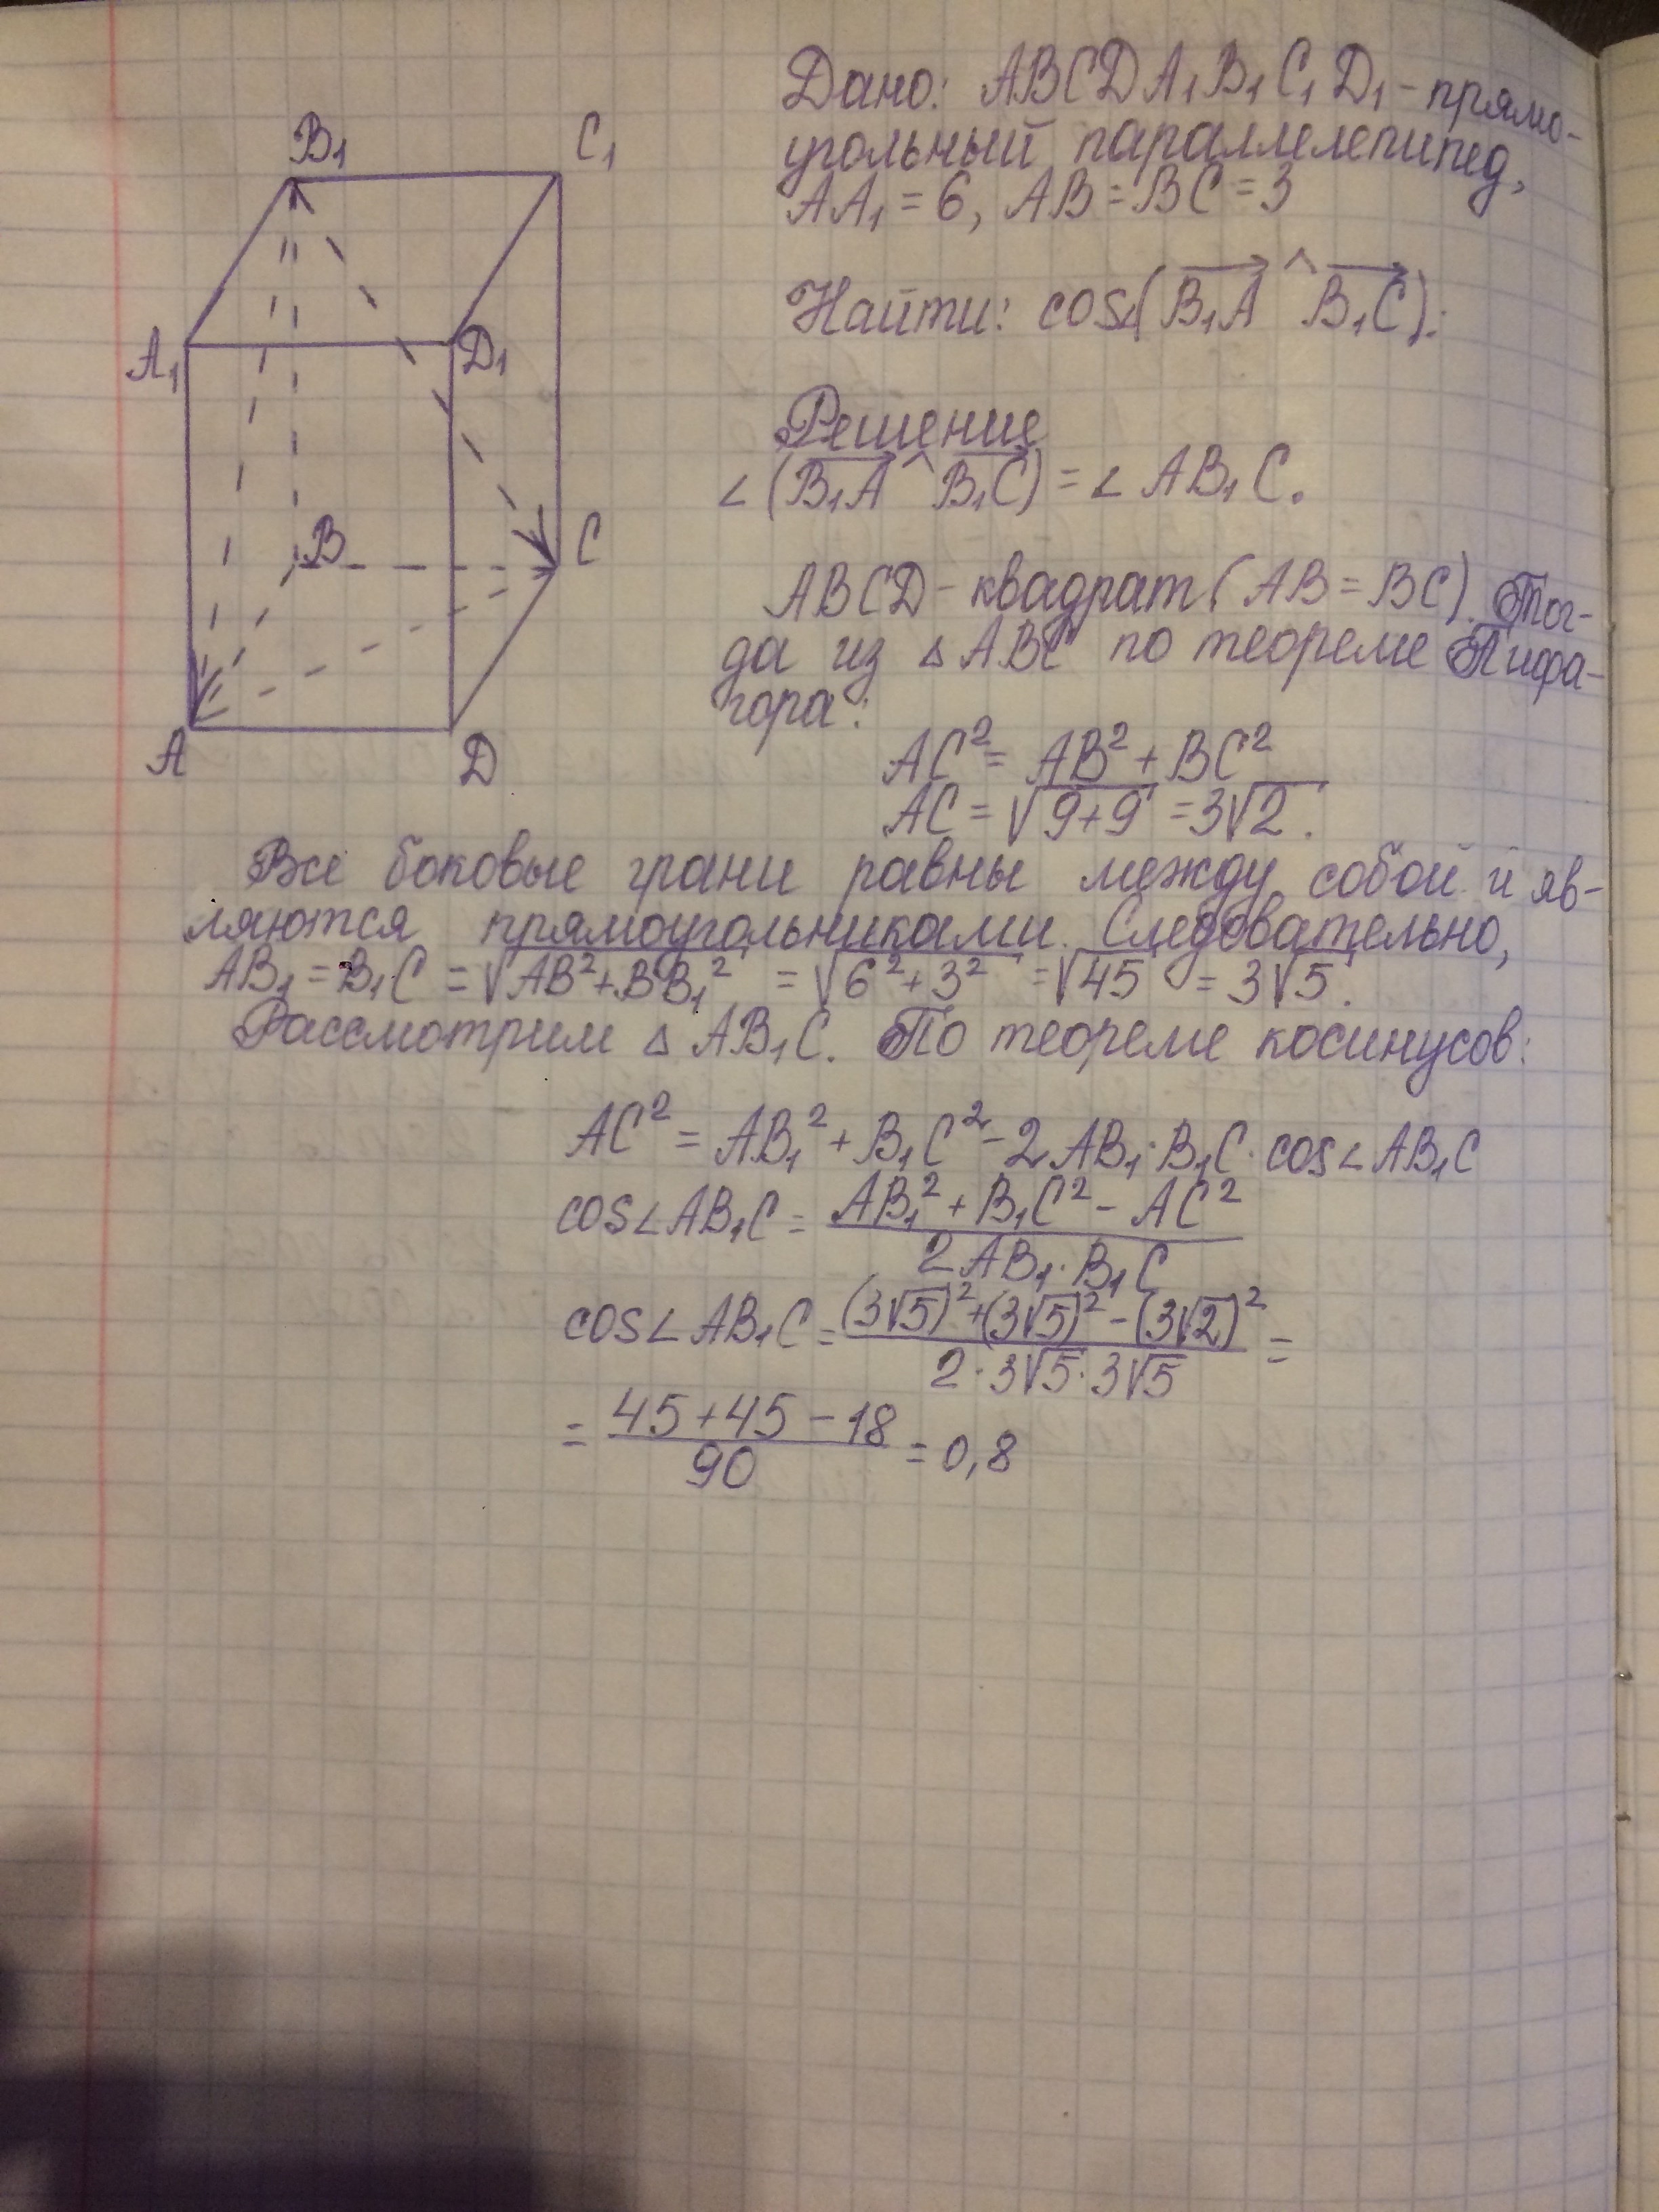 B₁
C₁
A₁
D₁
B
C
A
D
Дано: ABCDA₁B₁C₁D₁ - прямо-
угольный параллелепипед,
AA₁ = 6, AB = BC = 3
Найти: cos∠(B₁A ^ B₁C).
Решение
∠ (B₁A ^ B₁C) = ∠ AB₁C.
ABCD - квадрат (AB = BC). Тог-
да из △ ABC по теореме Пифа-
гора:
AC² = AB² + BC²
AC = √9+9 = 3√2.
Все боковые грани равны между собой и яв-
ляются прямоугольниками. Следовательно,
AB₁ = B₁C = √AB²+BB₁² = √6²+3² = √45 = 3√5.
Рассмотрим △ AB₁C. По теореме косинусов:
AC² = AB₁² + B₁C² - 2AB₁·B₁C·cos∠AB₁C
cos∠AB₁C = (AB₁² + B₁C² - AC²) / (2AB₁·B₁C)
cos∠AB₁C = ((3√5)²+(3√5)²-(3√2)²) / (2·3√5·3√5) =
= (45+45-18) / 90 = 0,8